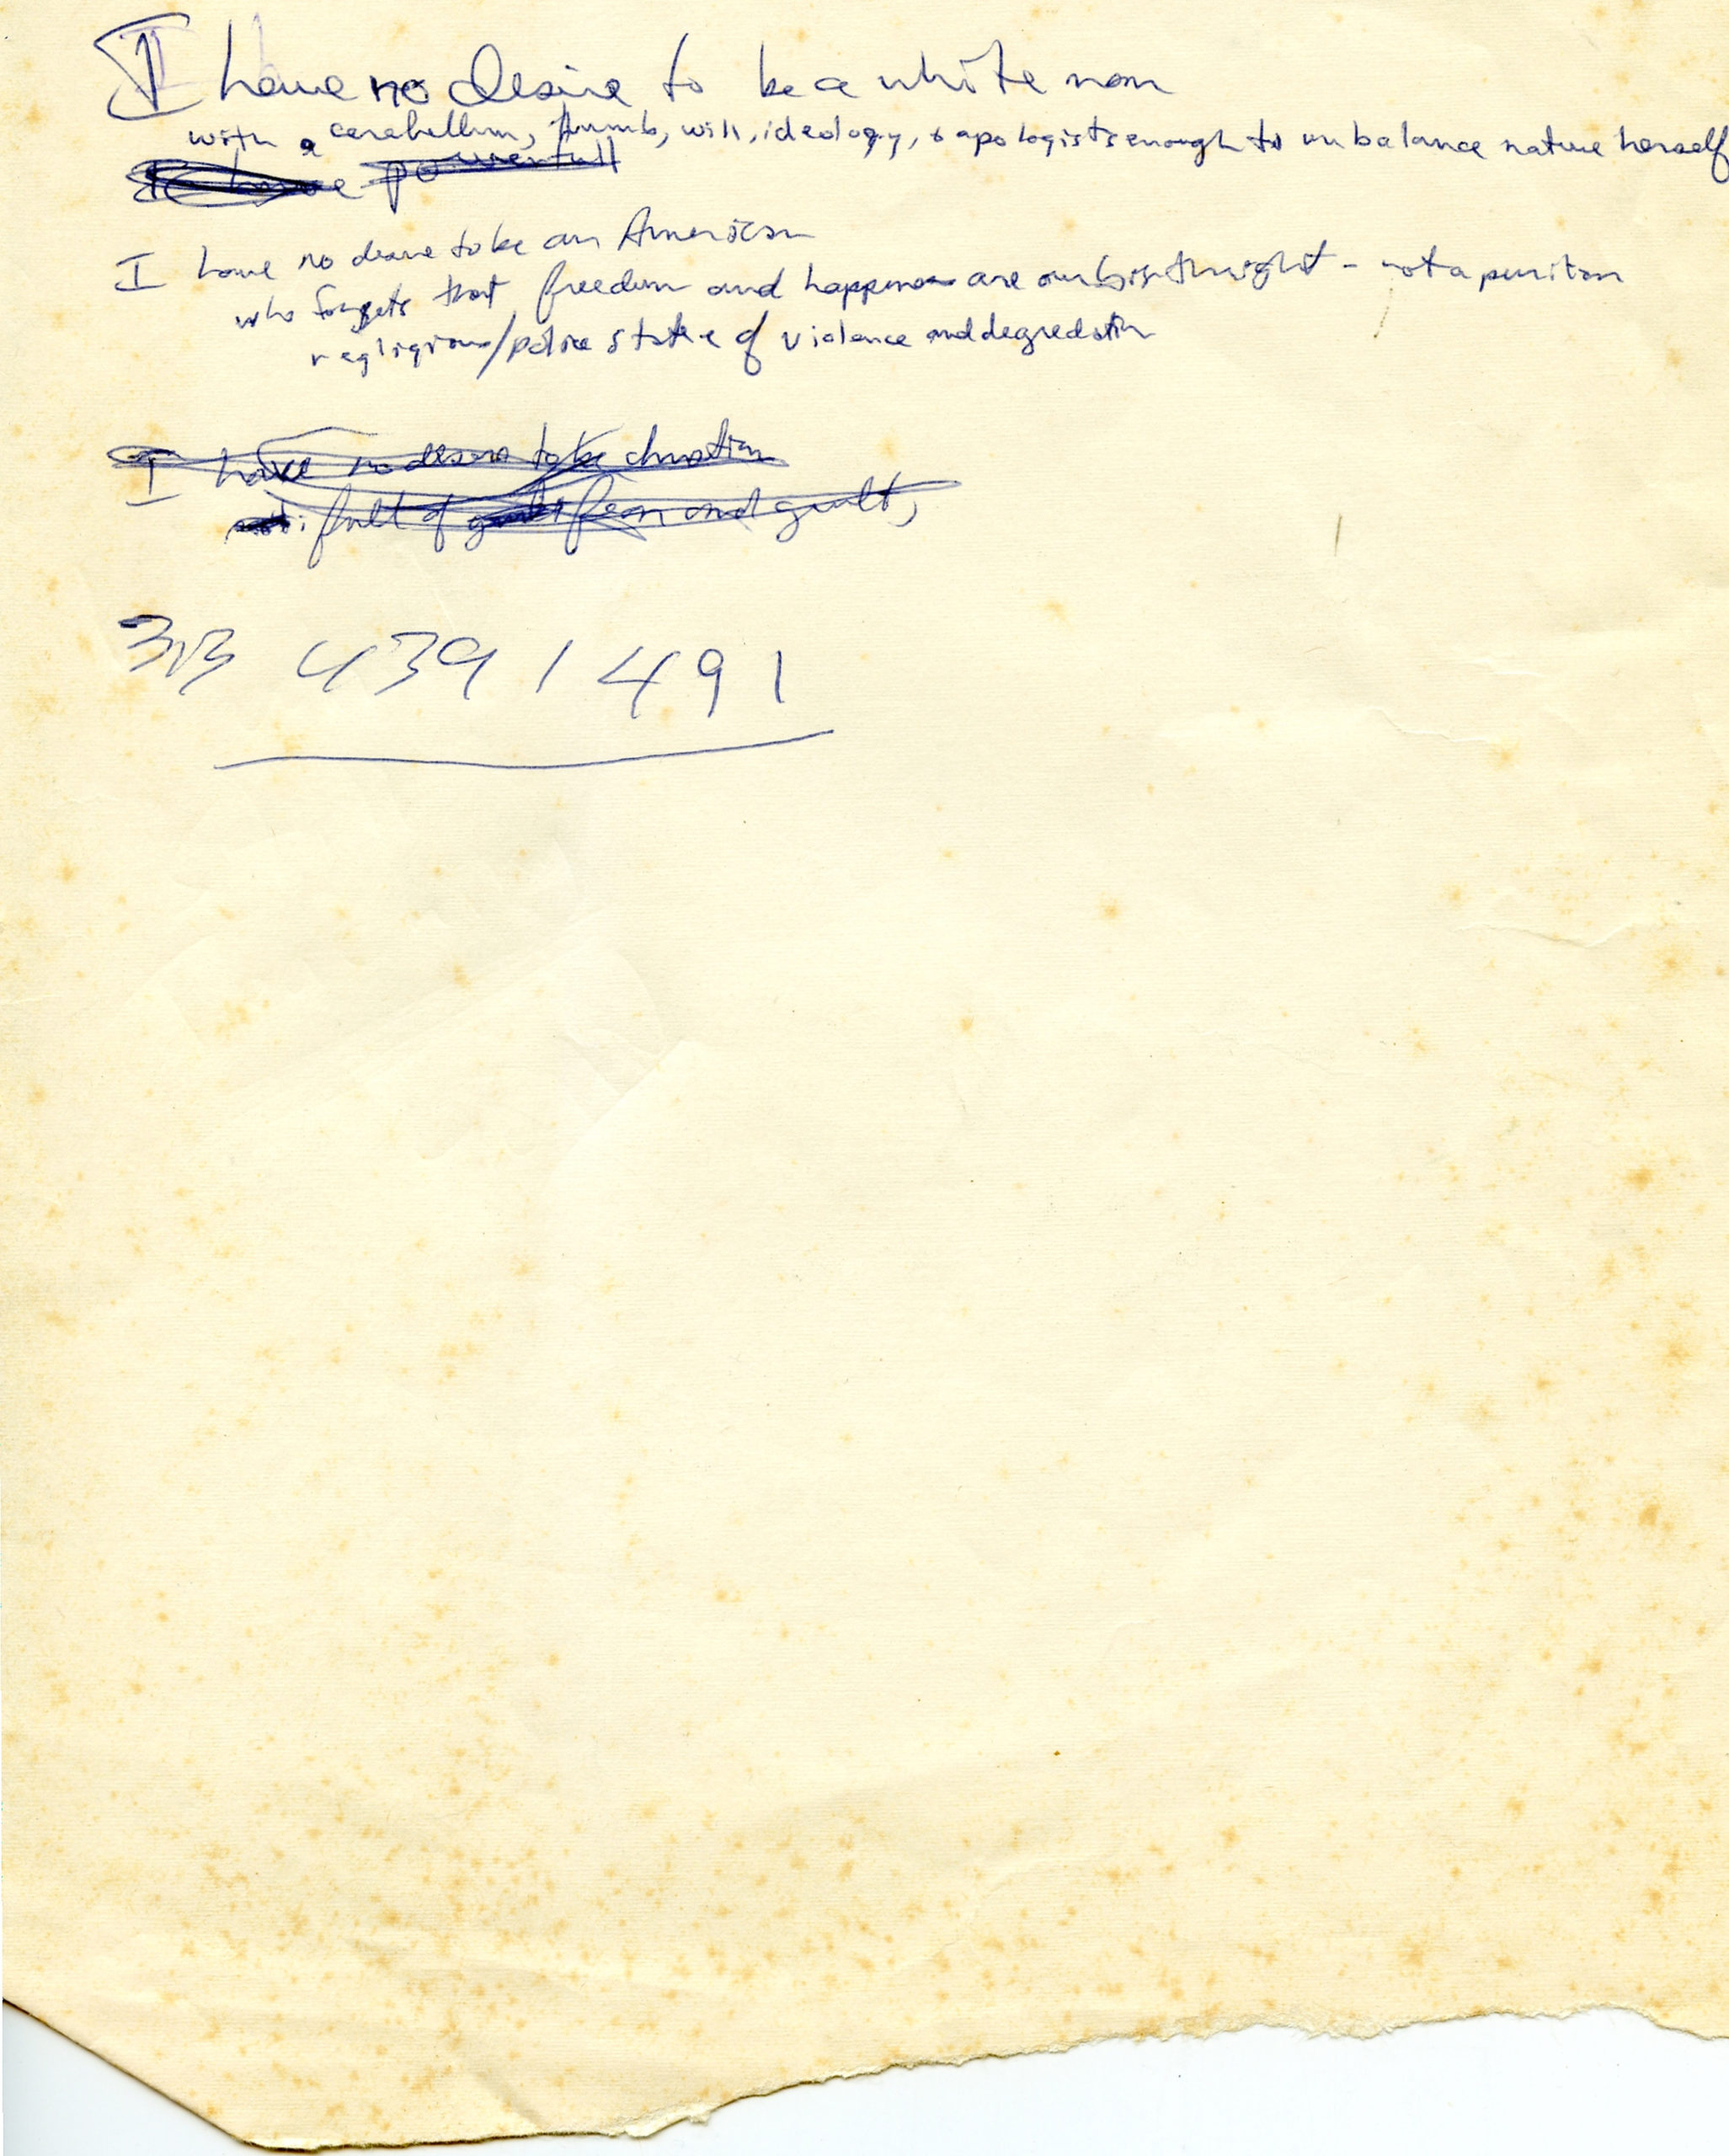 I have no desire to be a white man
with a cerebellum, thumb, will, ideology, & apologists enough to unbalance nature herself
powerfull
I have no desire to be an American
who forgets that freedom and happiness are our birthright - not a puritan
regligious/police state of violence and degredation
I have no desire to be christian
full of fear and guilt,
313 439 1491